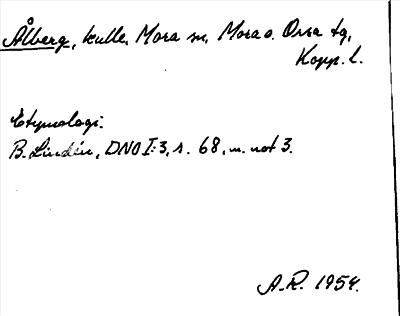 Ålberg, kulle, Mora sn, Mora o. Orsa tg,
Kopp. l.
Etymologi:
B. Lindén, DNO I:3, s. 68, m. not 3.
A.R. 1954.